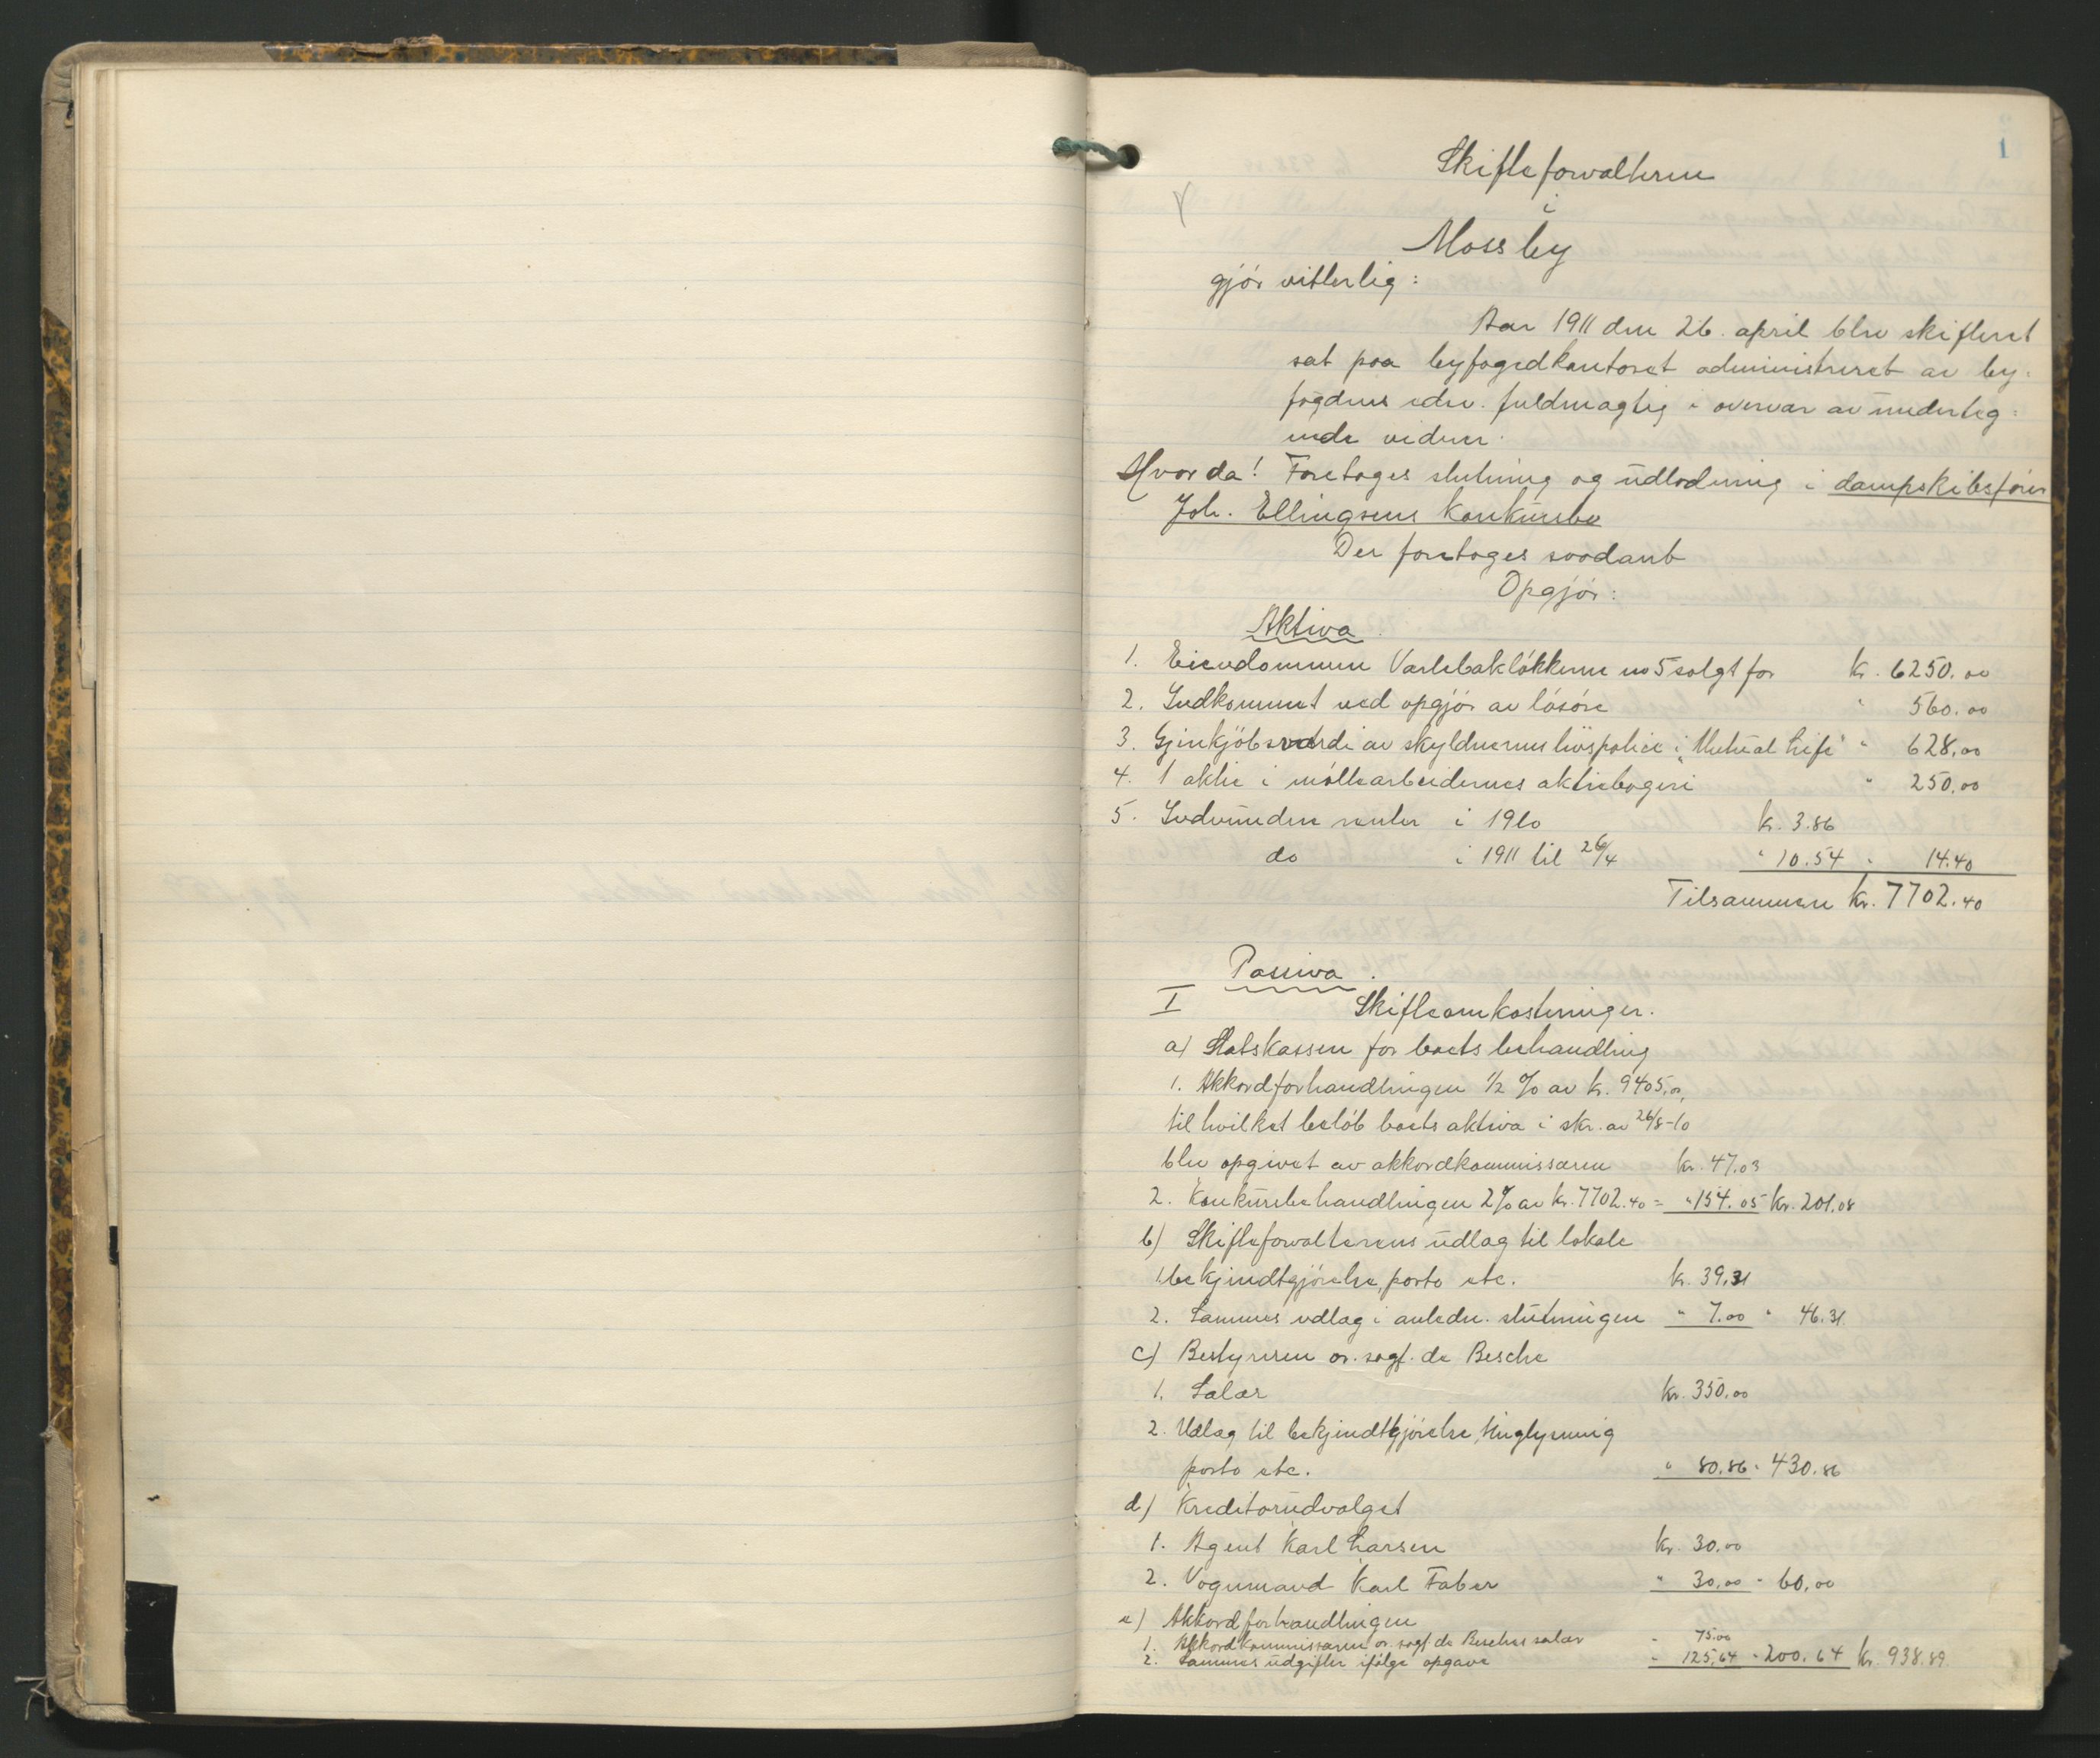 1
Skifteforvalteren
i
Moss by
gjör vitterlig:
Aar 1911 den 26. april blev skifteret
sat paa byfogedkontoret administreret av by-
fogdens edsv. fuldmægtig i overvær av underteg-
nede vidner.
Hvorda! Foretoges slutning og udlodning i dampskibsförer
Joh. Ellingsens Konkursbo
Der foretoges saadant
Opgjör:
Aktiva
1. Eiendommen Varlebakløkkerne no 5 solgt for kr. 6250.00
2. Indkommet ved opgjör av lösöre " 560.00
3. Gjenkjöbsværdi av skyldnerens livspolice i "Mutual Life" " 628.00
4. 1 aktie i möllearbeidernes aktiebageri " 250.00
5. Indvundne renter i 1910 kr. 3.86
do i 1911 til 26/4 " 10.54 " 14.40
Tilsammen kr. 7702.40
Passiva.
I Skifteomkostninger.
a) Statskassen for boets behandling
1. Akkordforhandlingen 1/2 % av kr. 9405.00,
til hvilket belöb boets aktiva i skr. av 26/8-10
blev opgivet av akkordkommissæren kr. 47.03
2. Konkursbehandlingen 2% av kr. 7702.40 = " 154.05 kr. 201.08
b) Skifteforvalterens udlag til lokale
1. bekjendtgjörelse, porto etc. kr. 39.31
2. Sammes udlag i anledn. slutningen " 7.00 " 46.31
c) Bestyreren or. sagf. de Besche
1. Salær kr. 350.00
2. Udlag til bekjendtgjörelse, tinglysning
porto etc. " 80.86 " 430.86
d) Kreditorudvalget
1. Agent Karl Larsen kr. 30.00
2. Vognmand Karl Faber " 30.00 " 60.00
e) Akkordforhandlingen
1. Akkordkommissæren or. sagf. de Besches salær " 75.00
2. Sammes udgifter ifölge opgave " 125.64 " 200.64 kr. 938.89.